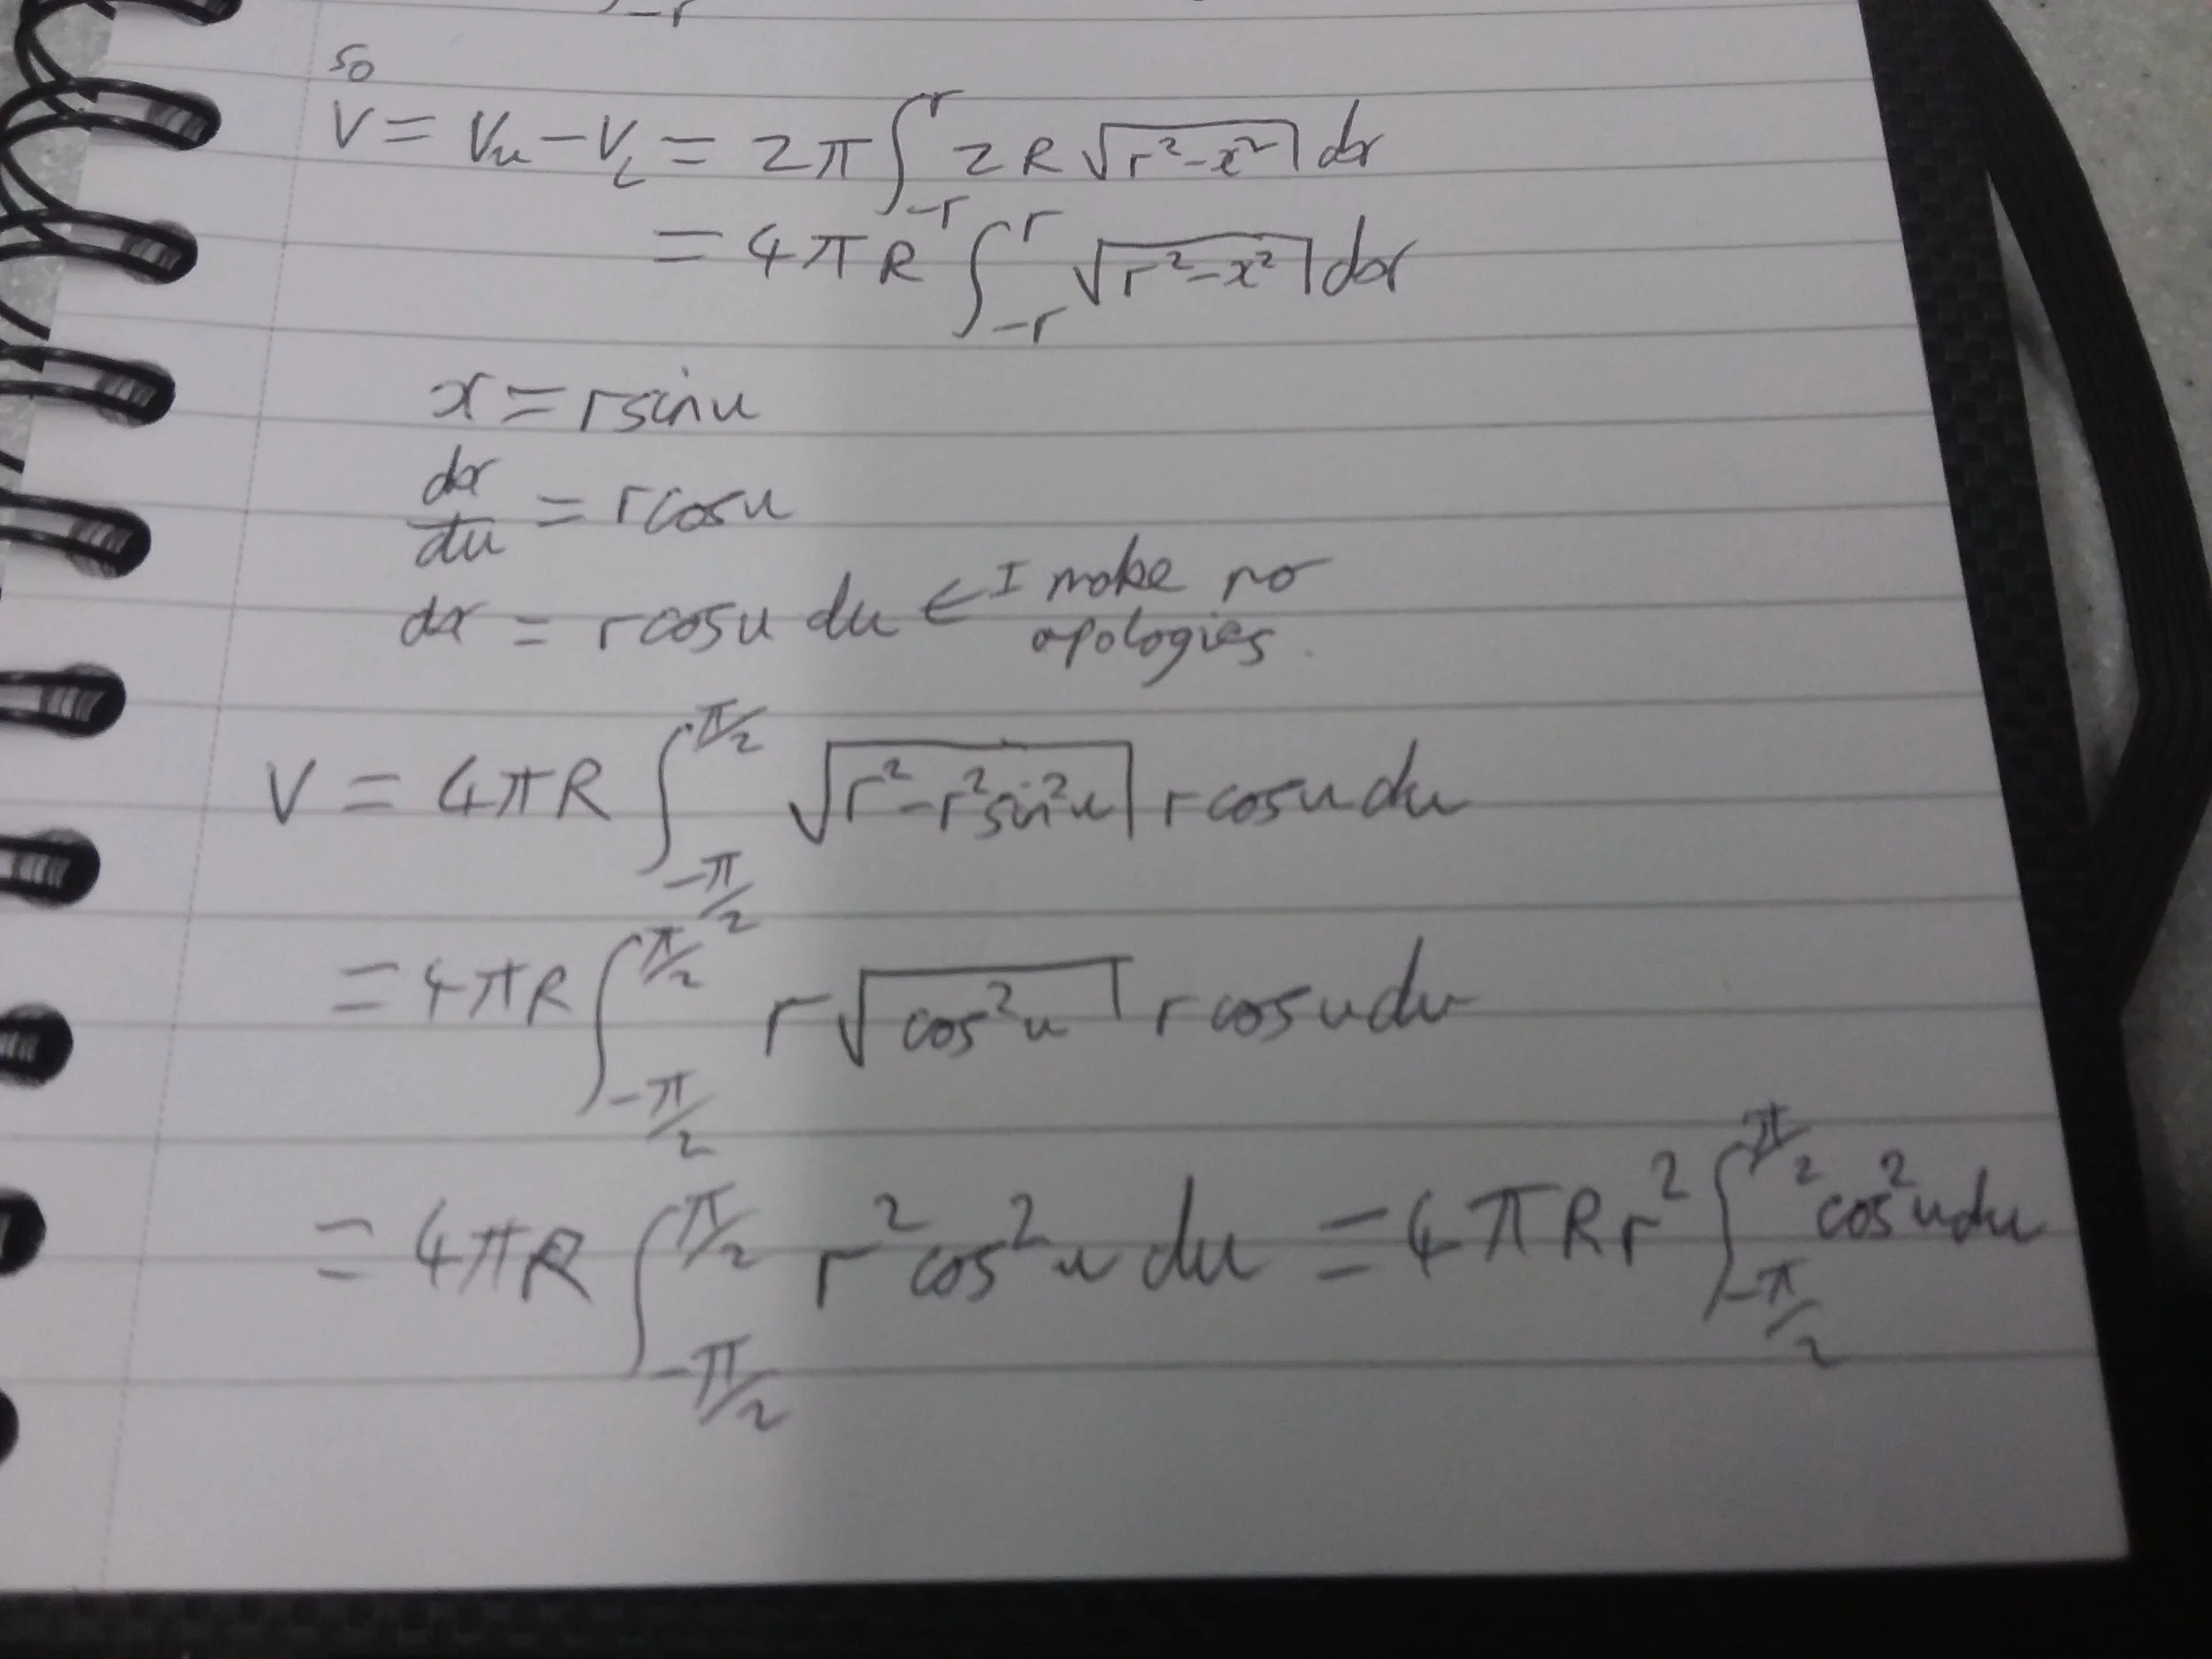 -r
so
V = Vu - VL = 2π ∫_{-r}^{r} 2R √(r²-x²) dx
= 4πR ∫_{-r}^{r} √(r²-x²) dx
x = r sin u
dx/du = r cos u
dx = r cos u du ← I make no
apologies.
V = 4πR ∫_{-π/2}^{π/2} √(r²-r²sin²u) r cos u du
= 4πR ∫_{-π/2}^{π/2} r√(cos²u) r cos u du
= 4πR ∫_{-π/2}^{π/2} r²cos²u du = 4πRr² ∫_{-π/2}^{π/2} cos²u du